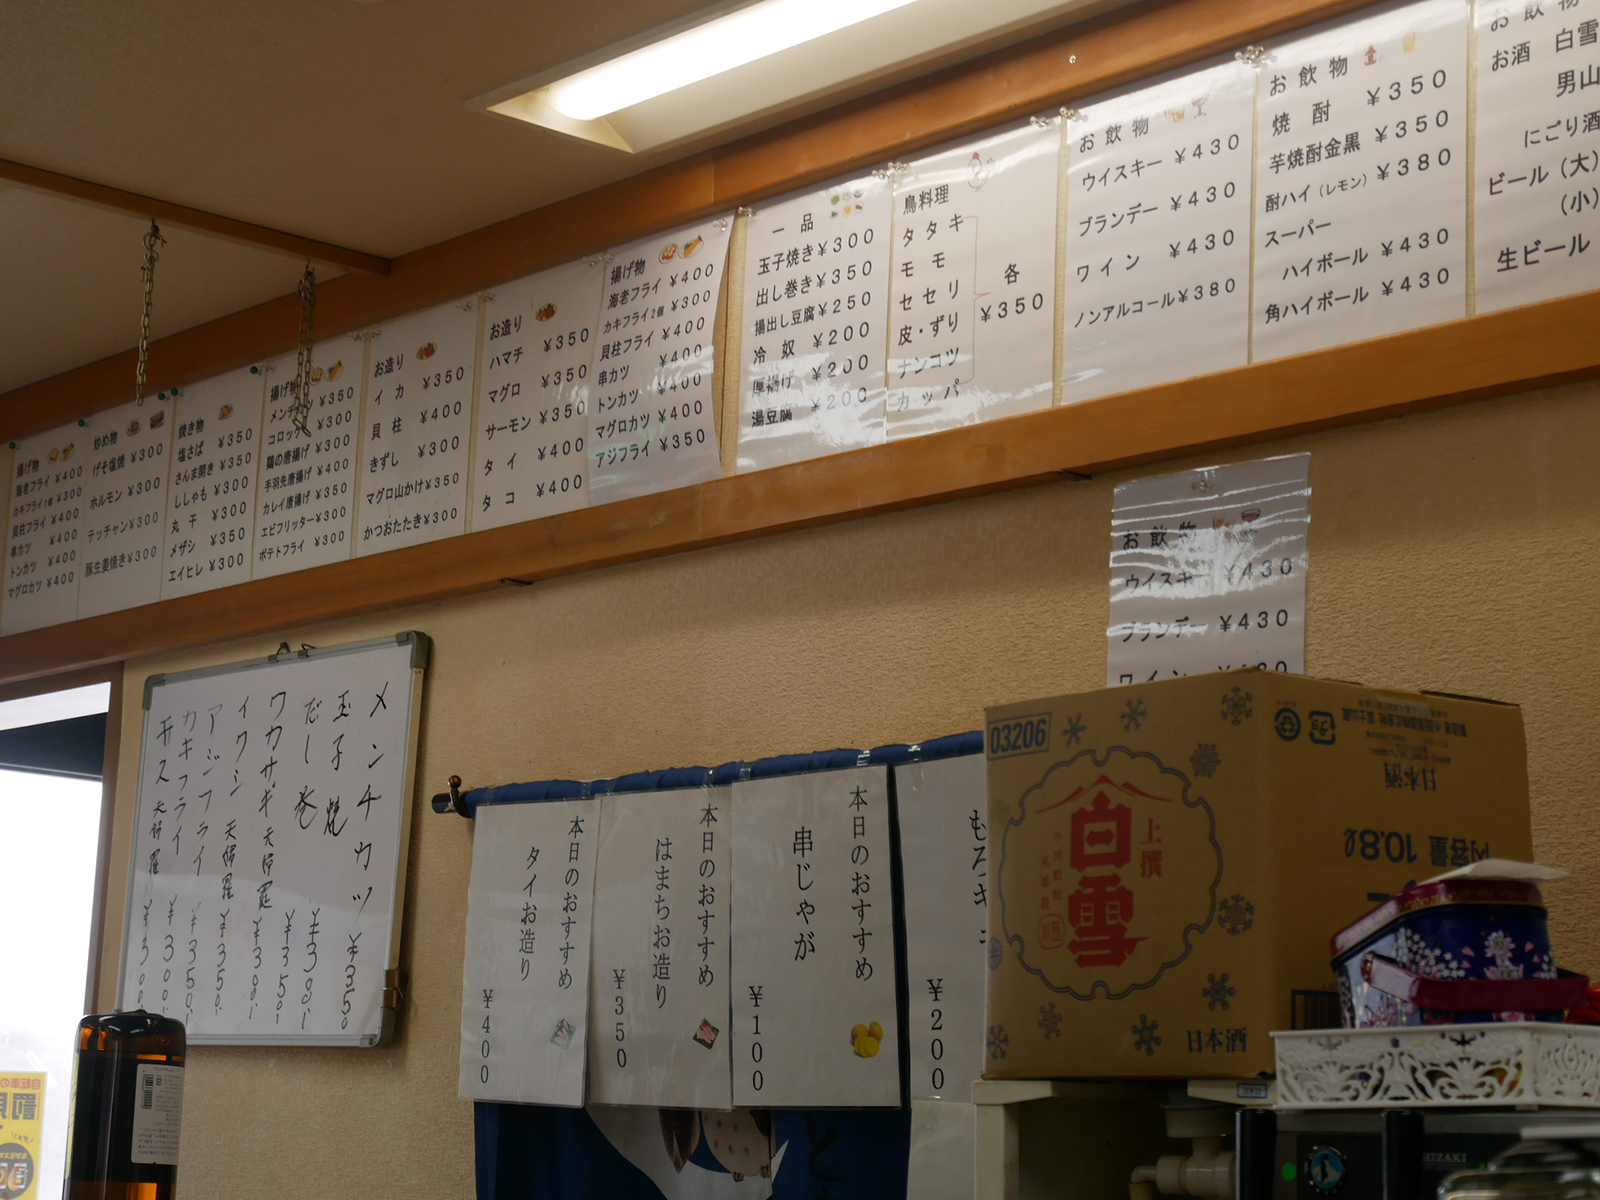 揚げ物
海老フライ ¥400
カキフライ2個 ¥300
貝柱フライ ¥400
串カツ ¥400
トンカツ ¥400
マグロカツ ¥400
炒め物
げそ塩焼 ¥300
ホルモン ¥300
テッチャン ¥300
豚生姜焼き ¥300
焼き物
塩さば ¥350
さんま開き ¥350
ししゃも ¥300
丸干 ¥300
メザシ ¥350
エイヒレ ¥300
揚げ物
メンチカツ ¥350
コロッケ ¥300
鶏の唐揚げ ¥300
手羽先唐揚げ ¥400
カレイ唐揚げ ¥350
エビフリッター ¥300
ポテトフライ ¥300
お造り
イカ ¥350
貝柱 ¥400
きずし ¥300
マグロ山かけ ¥350
かつおたたき ¥300
お造り
ハマチ ¥350
マグロ ¥350
サーモン ¥350
タイ ¥400
タコ ¥400
揚げ物
海老フライ ¥400
カキフライ2個 ¥300
貝柱フライ ¥400
串カツ ¥400
トンカツ ¥400
マグロカツ ¥400
アジフライ ¥350
一品
玉子焼き ¥300
出し巻き ¥350
揚出し豆腐 ¥250
冷奴 ¥200
厚揚げ ¥200
湯豆腐 ¥200
鳥料理
タタキ
モモ
セセリ
皮・ずり
ナンコツ
カッパ
各
¥350
お飲物
ウイスキー ¥430
ブランデー ¥430
ワイン ¥430
ノンアルコール ¥380
お飲物
焼酎 ¥350
芋焼酎金黒 ¥350
酎ハイ(レモン) ¥380
スーパー
ハイボール ¥430
角ハイボール ¥430
お飲物
お酒 白雪
男山
にごり酒
ビール(大)
(小)
生ビール
お飲物
ウイスキー ¥430
ブランデー ¥430
ワイン
メンチカツ ¥350
玉子焼 ¥300
だし巻 ¥350
ワカサギ天婦羅 ¥300
イワシ天婦羅 ¥350
アジフライ ¥350
カキフライ ¥300
キス天婦羅 ¥300
本日のおすすめ
タイお造り
¥400
本日のおすすめ
はまちお造り
¥350
本日のおすすめ
串じゃが
¥100
¥200
03206
上撰
白雪
日本酒
日本酒
内容量 10.8ℓ
自転車の